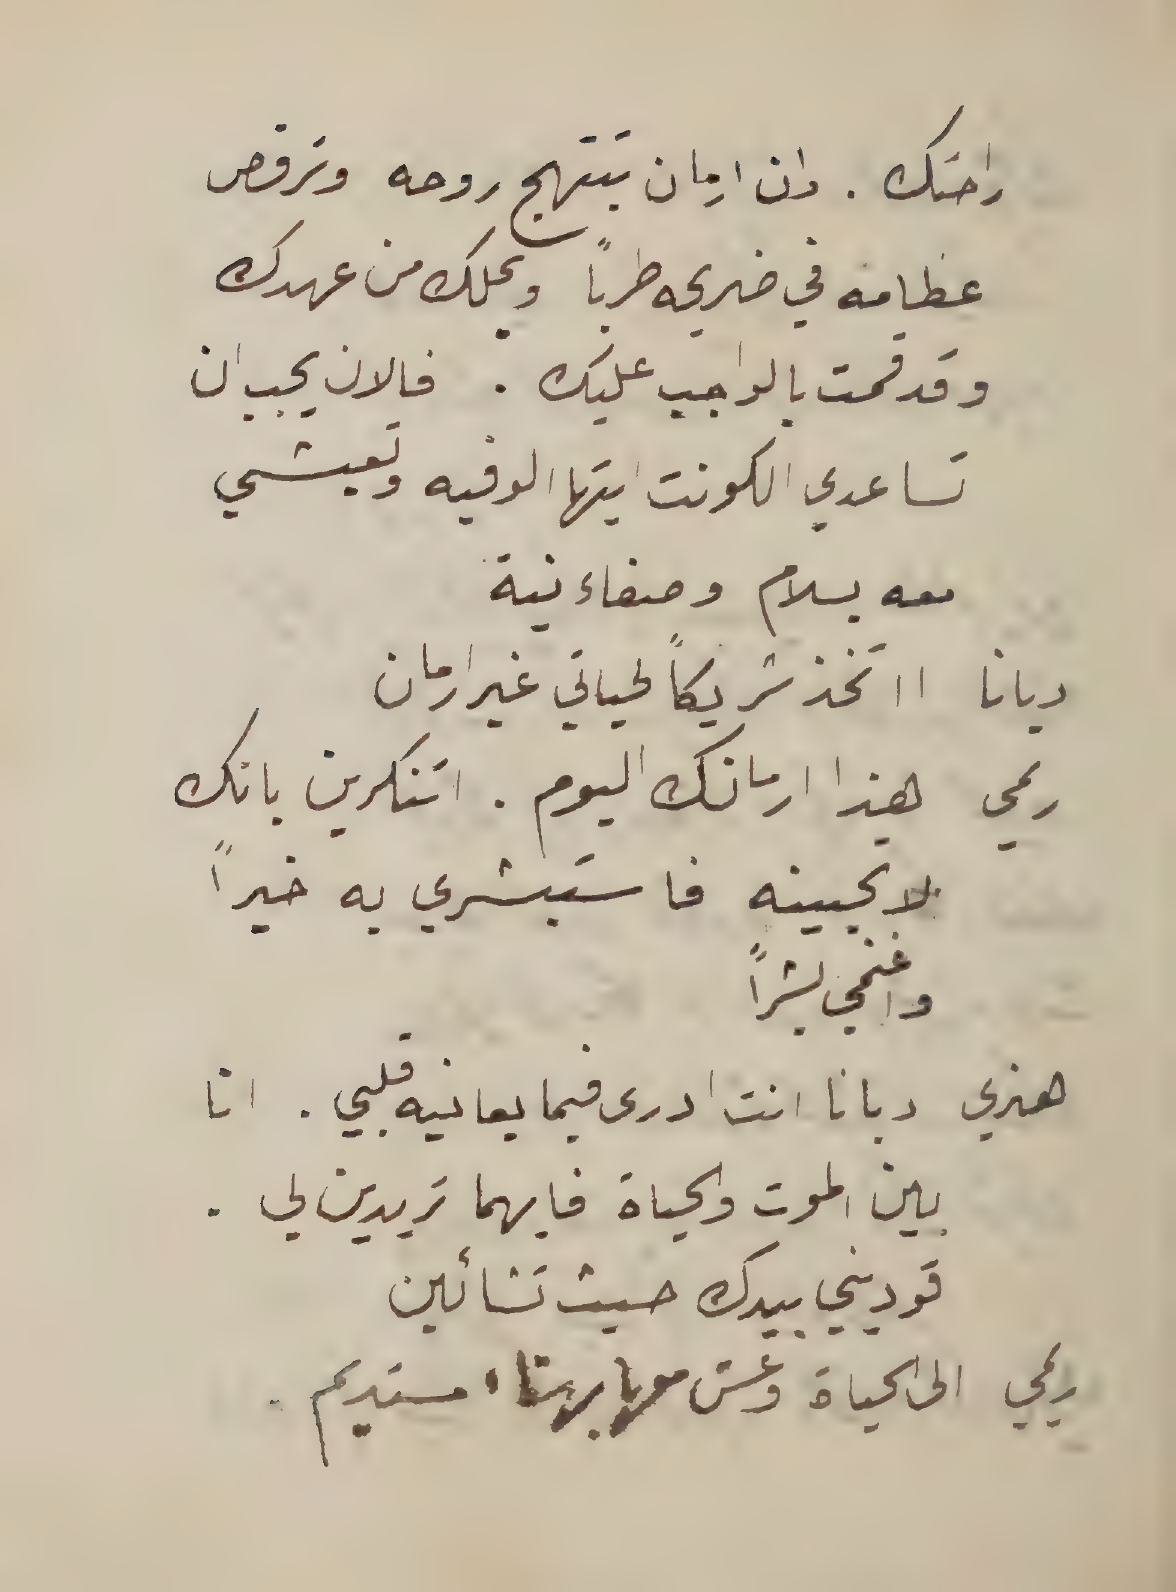 راحتك . وان ارمان تبتهج روحه وترقص
عظامه في ضريحه طرباً ويحلك من عهدك
وقد قمت بالواجب عليك . فالان يجب ان
تساعدي الكونت ايتها الوفيه وتعيشي
معه بسلام وصفاء نية
ديانا ااتخذ شريكاً لحياتي غير ارمان
ريمي هذا ارمانك اليوم . اتنكرين بانك
لا تحبينه فاستبشري به خيراً
واغنمي بشراً
هنري ديانا انت ادرى فيما يعانيه قلبي . انا
بين الموت والحياة فايهما تريدين لي .
قوديني بيدك حيث تشائين
ريمي الى الحياة وعش معها بهناء مستديم .